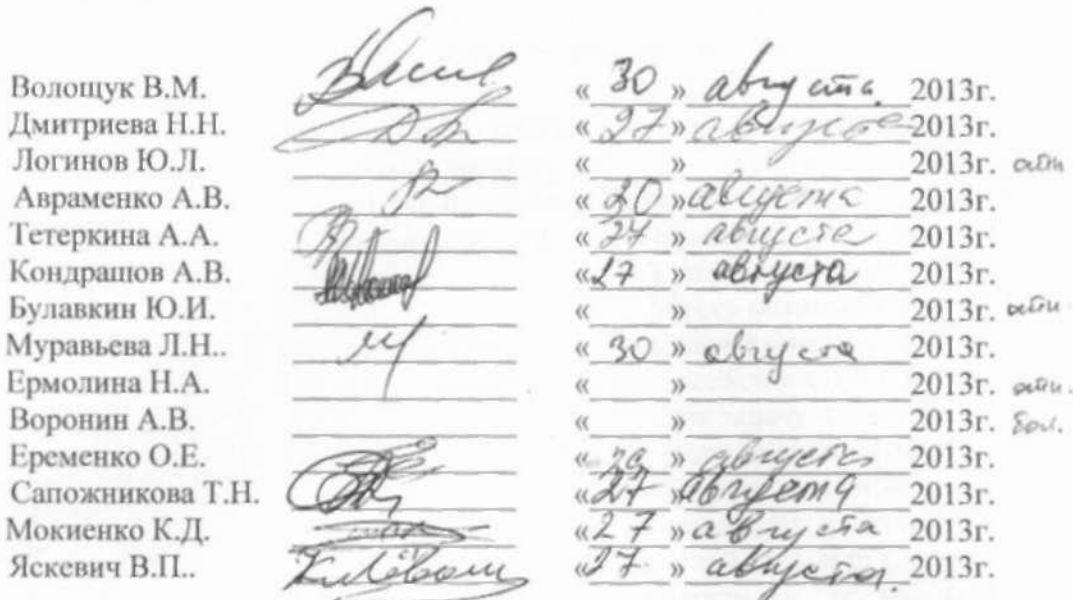 Волощук В.М. « 30 » августа. 2013г.
Дмитриева Н.Н. « 27 » августа 2013г.
Логинов Ю.Л. « » 2013г. отп
Авраменко А.В. « 20 » августа 2013г.
Тетеркина А.А. « 27 » августа 2013г.
Кондрашов А.В. «27 » августа 2013г.
Булавкин Ю.И. « » 2013г. отп.
Муравьева Л.Н.. « 30 » августа 2013г.
Ермолина Н.А. « » 2013г. отп.
Воронин А.В. « » 2013г. бол.
Еременко О.Е. « » августа 2013г.
Сапожникова Т.Н. «27 » августа 2013г.
Мокиенко К.Д. «27 » августа 2013г.
Яскевич В.П.. «27. » августа. 2013г.